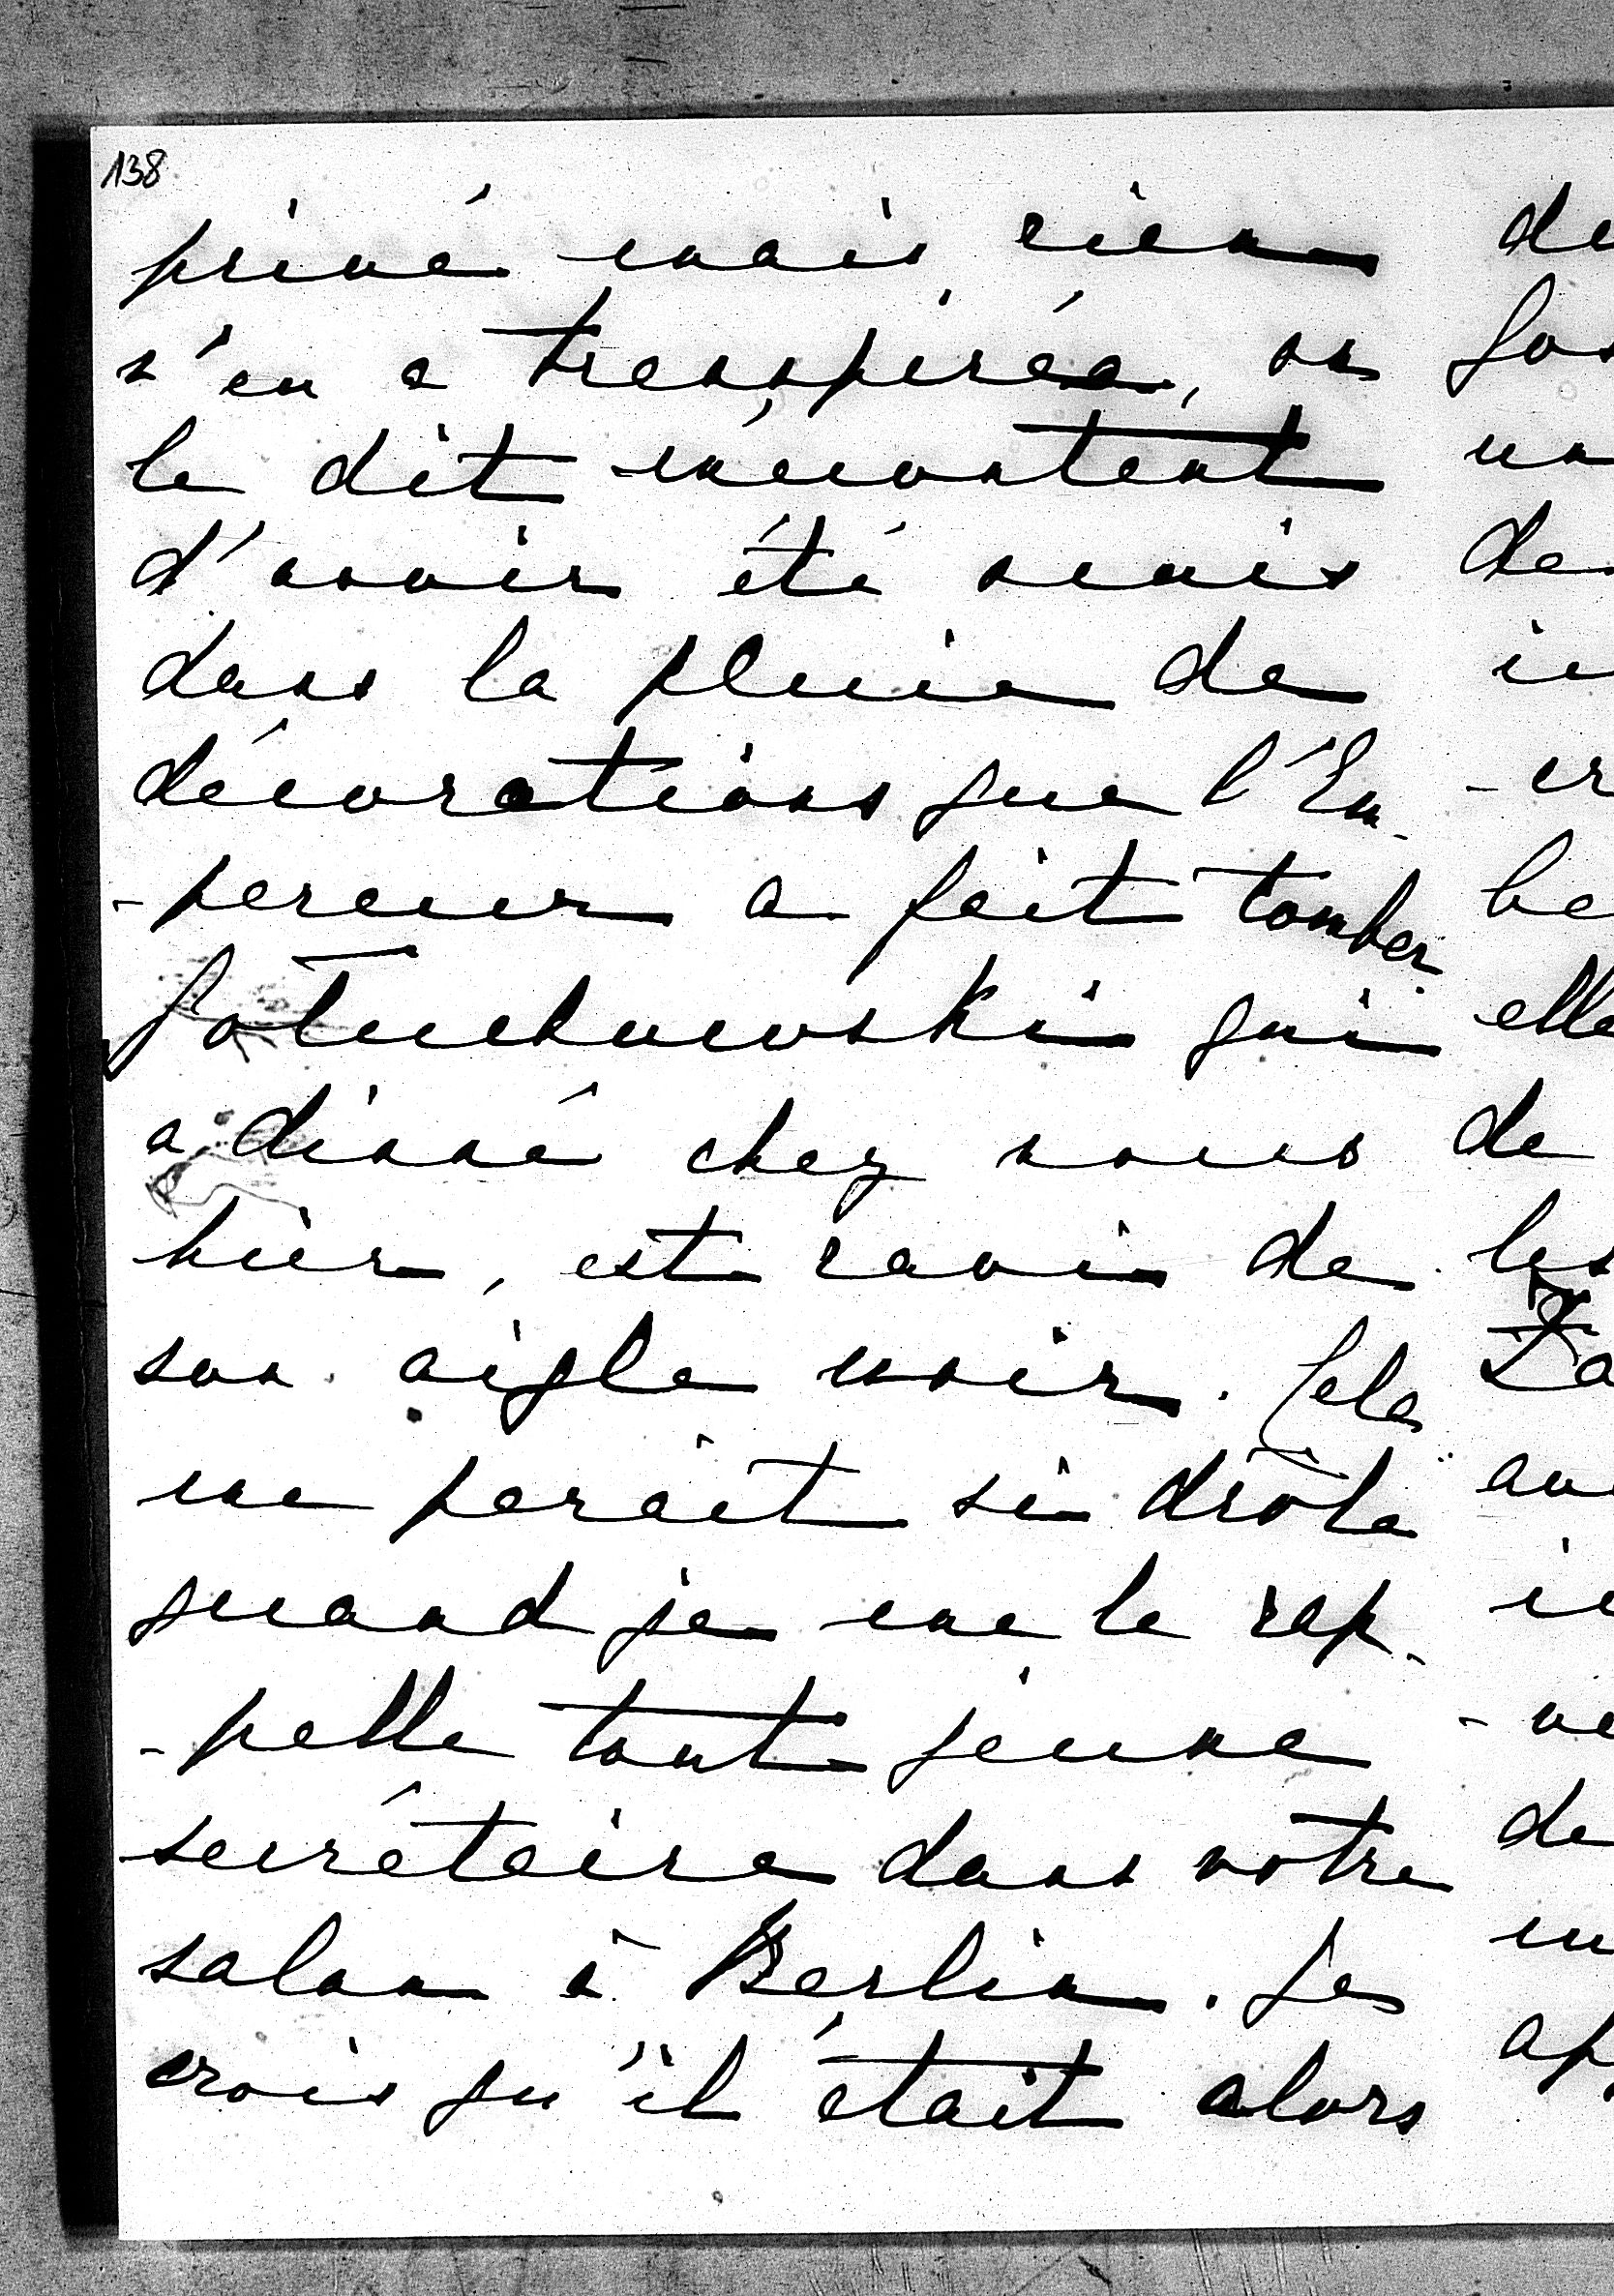 138
privé mais rien
n'en a transpirée, on
le dit mécontent
d'avoir été omis
dans la pluie de
décorations que l'Em-
-pereur a fait tomber.
Goluchowski qui
a dîné chez nous
hier, est ravi de
son aigle noir. Cela
me paraît si drôle
quand je me le rap-
-pelle tout jeune
secrétaire dans notre
salon à Berlin. Je
crois qu'il était alors